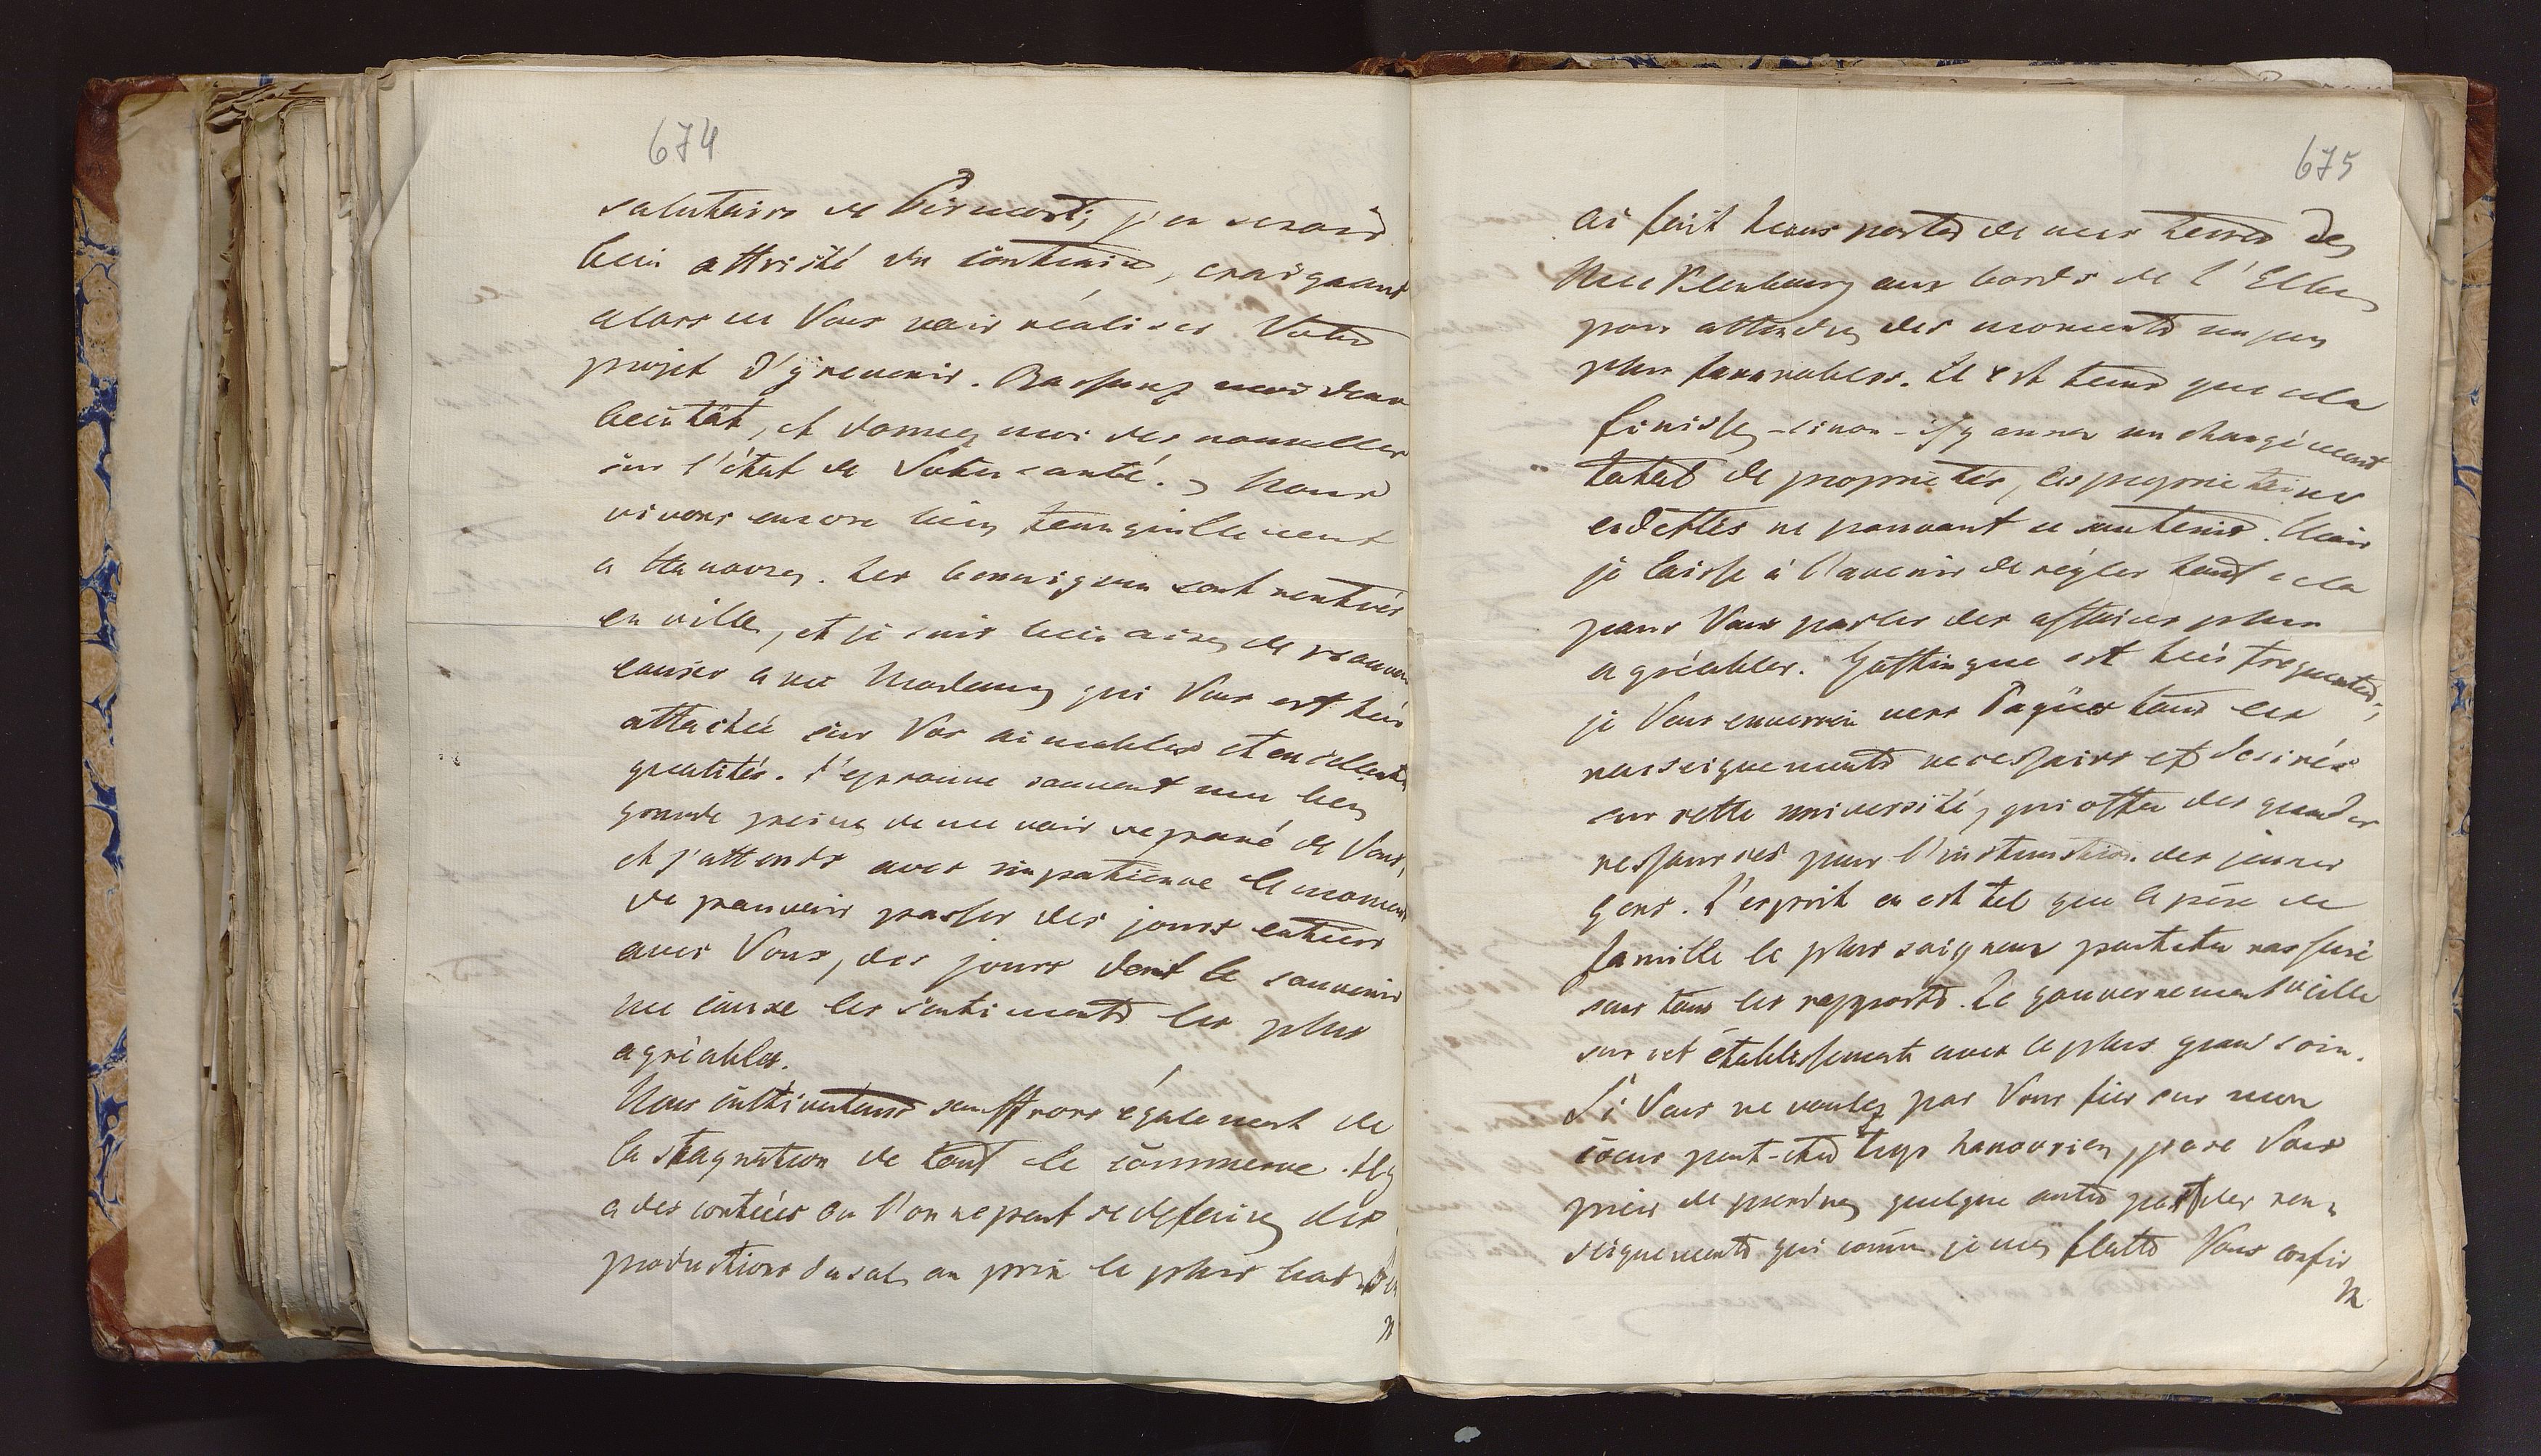 674
salutaires de Pirmont; j'en serois
bien attristé du contraire, craignant
alors ne Vous voir réaliser Votre
projet d'y revenir. Rassurez moi donc
bientôt, et donnez moi des nouvelles
sur l'état de Votre santé. Nous
vivons encore bien tranquillement
a Hanovre. Les sont rentrés
en ville, et je suis bien aise de pouvoir
causer avec Madame qui Vous est très
attachée sur Vos aimables et excellentes
qualités. J'eprouve souvent une bien
grande peine de me voir separé de Vous,
et j'attends avec impatience le moment
de pouvoir passer des jours entiers
avec Vous, des jours dont le souvenir
me cause les sentiments les plus
agréables.
Nous cultivateurs souffrons également de
la stagnation de tout le commerce. Il y
a des contrées ou l'on ne peut se defaire des
productions du sol au prix le plus bas. J'en
675
ai fait transporter de mes terres de
Mecklenbourg aux bords de l'Elbe
pour attendre des moments un peu
plus favorables. Il est tems que cela
finisse - sinon - il y aura un changement
total de proprietés, les proprietaires
endettés ne pouvant se soutenir. Mais
je laisse à l'avenir de régler tout cela
pour Vous parler des affaires plus
agréables. Gottingue est très frequentée;
je Vous enverrai vers Paques tous les
renseignements necessaires et desirés
sur cette université, qui offre des grandes
ressources pour l'instruction des jeunes
gens. L'esprit en est tel que le père de
famille le plus soigneux peut etre rassuré
sous tous les rapports. Le gouvernement veille
sur cet établissement avec le plus grand soin.
Si Vous ne voulez pas Vous fier sur mon
coeur peut-etre trop hanovrien, j'ose Vous
prier de prendre quelque autre part des ren-
seignements qui comme je me flatte Vous confir
m